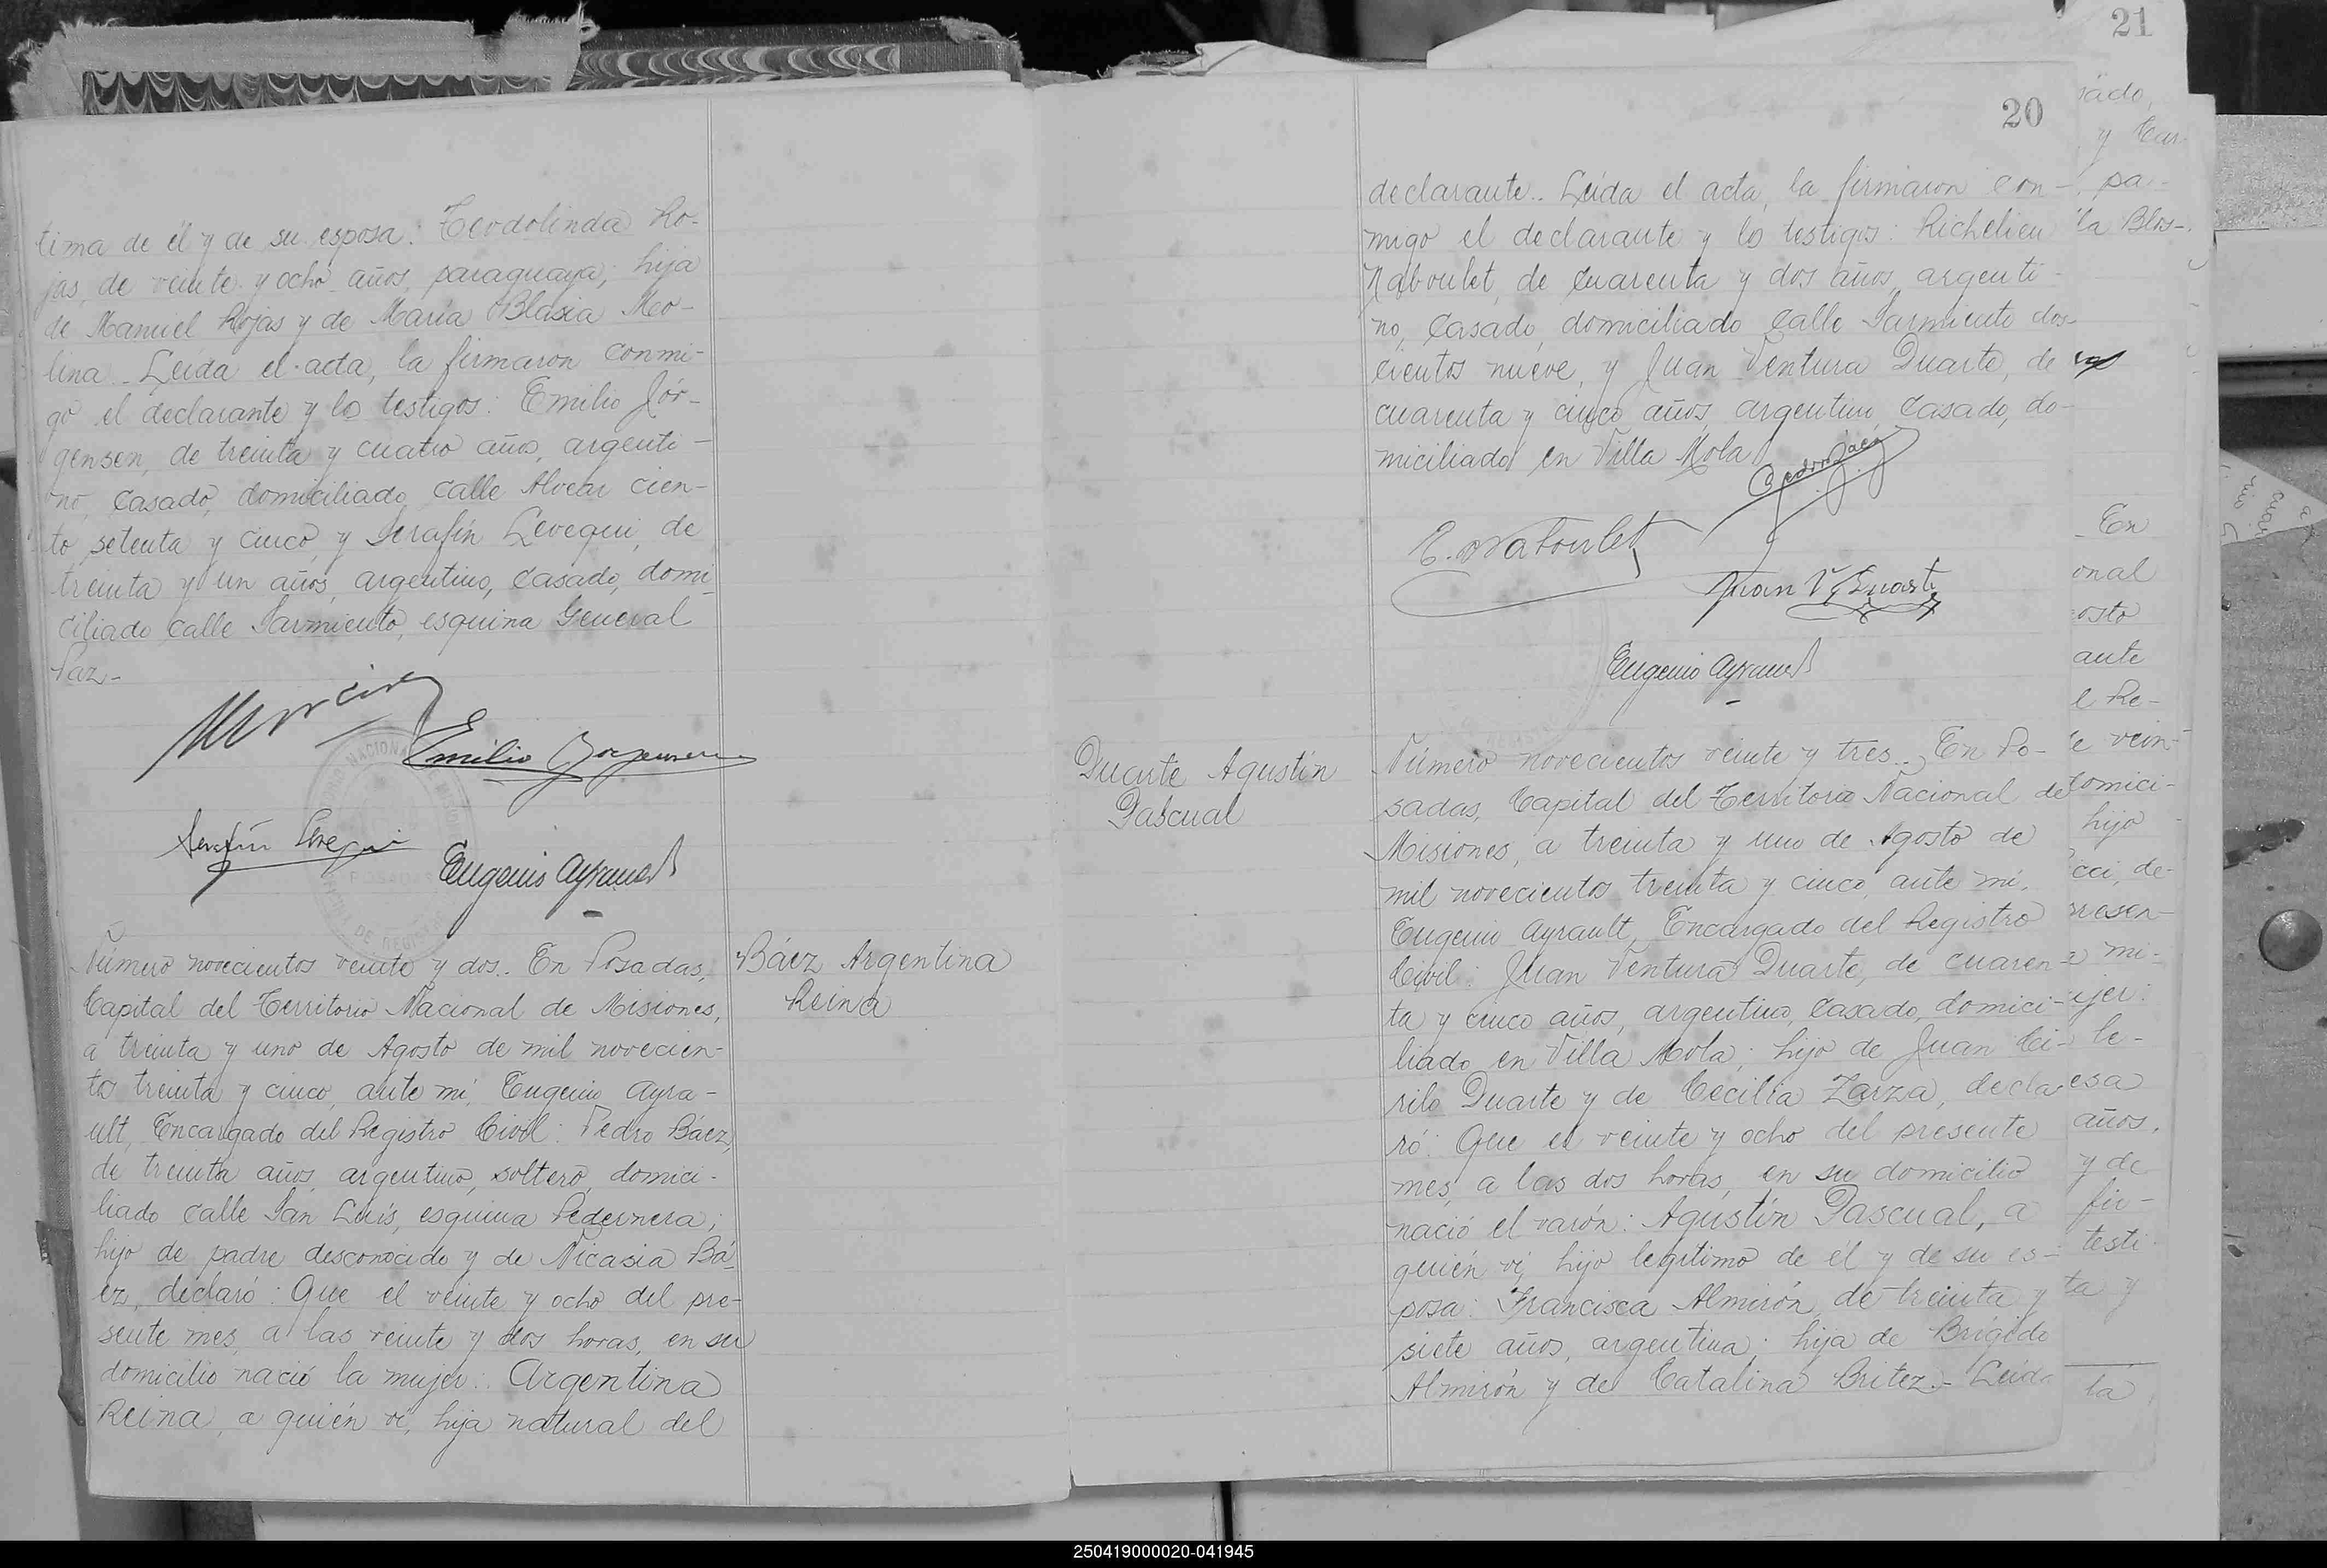 tima de él y de su esposa: Teodolinda Ro-
jas, de veinte y ocho años, paraguaya; hija
de Manuel Rojas y de María Blasia Meo-
lina. Leída el acta, la firmaron conmi-
go el declarante y lo testigos: Emilio Jór-
gensen, de treinta y cuatro años, argenti-
no, casado, domiciliado calle Alvear cien-
to setenta y cinco, y Serafín Leyequi, de
treinta y un años, argentino, casado, domi-
ciliado calle Sarmiento, esquina General
Paz.-
Emilio Jorgensen
Serafín
Eugenio Ayrault
Número novecientos veinte y dos.. En Posadas,
Capital del Territorio Nacional de Misiones,
a treinta y uno de Agosto de mil novecien-
tos treinta y cinco, ante mí, Eugenio Ayra-
ult, Encargado del Registro Civil: Pedro Báez,
de treinta años, argentino, soltero, domici-
liado calle San Luis, esquina Pedernera;
hijo de padre desconocido y de Nicasia Bá-
ez, declaró: Que el veinte y ocho del pre-
sente mes, a las veinte y dos horas, en su
domicilio nació la mujer: Argentina
Reina, a quién ví, hija natural del
Báez Argentina
Reina
20
declarante.. Leída el acta, la firmaron con-
migo el declarante y lo testigos: Richelieu
Naboulet, de cuarenta y dos años, argenti-
no, casado, domiciliado calle Sarmiento dos-
cientos nueve, y Juan Ventura Duarte, de
cuarenta y cinco años, argentino, casado, do-
miciliado en Villa Mola.
Pedro Báez
R. Naboulet
Juan V. Duarte
Eugenio Ayrault
Duarte Agustín
Pascual
Número novecientos veinte y tres.. En Po-
sadas, Capital del Territorio Nacional de
Misiones, a treinta y uno de Agosto de
mil novecientos treinta y cinco, ante mí,
Eugenio Ayrault, Encargado del Registro
Civil: Juan Ventura Duarte, de cuaren-
ta y cinco años, argentino, casado, domici-
liado en Villa Mola; hijo de Juan Ci-
rilo Duarte y de Cecilia Zarza, decla-
ró: Que el veinte y ocho del presente
mes, a las dos horas, en su domicilio
nació el varón: Agustín Pascual, a
quién ví, hijo legítimo de él y de su es-
posa: Francisca Almirón, de treinta y
siete años, argentina; hija de Brígido
Almirón y de Catalina Britez.- Leída
21
pa-
la Blos-
En
onal
osto
ante
l Re-
e vein-
domici-
hijo
cci, de-
presen-
mi-
ujer:
le-
esa
años,
y de
fir-
testi-
ta y
la
250419000020-041945